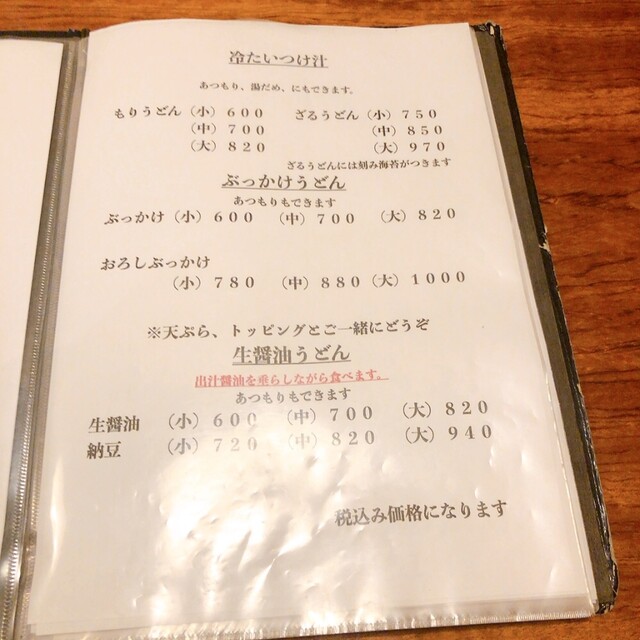 冷たいつけ汁
あつもり、湯だめ、にもできます。
もりうどん（小）６００　ざるうどん（小）７５０
（中）７００　（中）８５０
（大）８２０　（大）９７０
ざるうどんには刻み海苔がつきます
ぶっかけうどん
あつもりもできます
ぶっかけ（小）６００　（中）７００　（大）８２０
おろしぶっかけ
（小）７８０　（中）８８０（大）１０００
※天ぷら、トッピングとご一緒にどうぞ
生醤油うどん
出汁醤油を垂らしながら食べます。
あつもりもできます
生醤油　（小）６００　（中）７００　（大）８２０
納豆　（小）７２０　（中）８２０　（大）９４０
税込み価格になります